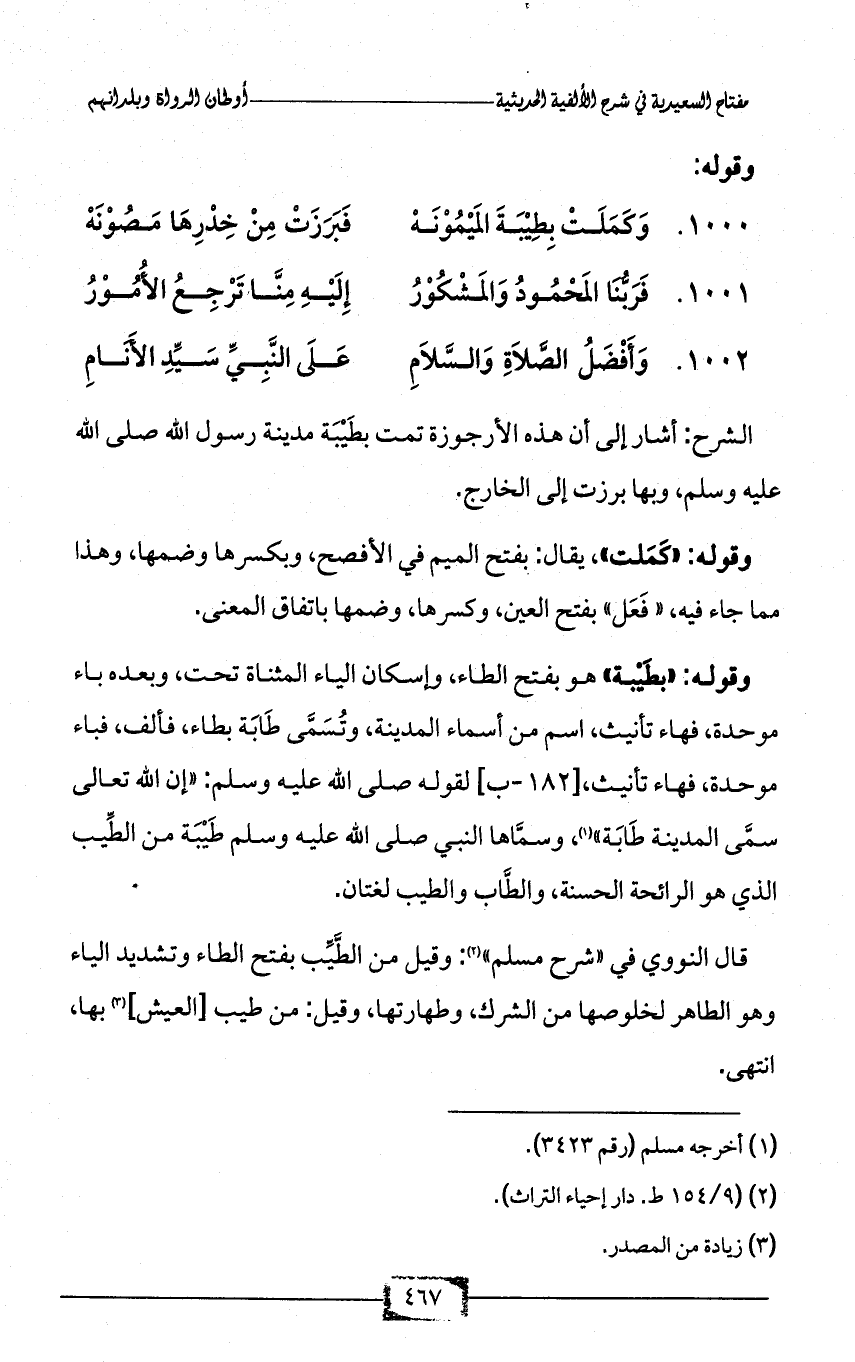 مفتاح السعيدية في شرح الألفية الحديثية ـــــــــ أوطان الرواة وبلدانهم
وقوله:
١٠٠٠. وَكَمَلَـتْ بِطِيْبَـةَ المَيْمُوْنَـهْ فَبَرَزَتْ مِنْ خِدْرِهَا مَـصُوْنَهْ
١٠٠١. فَرَبُّنَا المَحْمُـودُ وَالمَـشْكُوْرُ إِلَيْـهِ مِنَّـا تَرْجِـعُ الأُمُـوْرُ
١٠٠٢. وَأَفْضَلُ الصَّلاَةِ وَالـسَّلاَمِ عَـلَى النَّبِـيِّ سَـيِّدِ الأَنَـامِ
الـشرح: أشار إلى أن هذه الأرجوزة تمت بطَيْبَة مدينة رسول الله صلى الله
عليه وسلم، وبها برزت إلى الخارج.
وقولـه: «كَمَلت»، يقال: بفتح الميم في الأفصح، وبكسرها وضمها، وهذا
مما جاء فيه، « فَعَل» بفتح العين، وكسرها، وضمها باتفاق المعنى.
وقولـه: «بطَيْبـة» هـو بفتح الطاء، وإسكان الياء المثناة تحت، وبعده باء
موحدة، فهاء تأنيث، اسم من أسماء المدينة، وتُسَمَّى طَابَة بطاء، فألف، فباء
موحدة، فهاء تأنيث،[١٨٢-ب] لقولـه صلى الله عليـه وسلم: «إن الله تعالى
سمَّى المدينة طَابَة»(١)، وسمَّاها النبي صلى الله عليه وسلم طَيْبَة مـن الطِّيـب
الذي هو الرائحة الحسنة، والطَّاب والطيب لغتان.
قال النووي في «شرح مسلم»(٢): وقيل من الطَّيِّب بفتح الطاء وتشديد الياء
وهو الطاهر لخلوصها من الشرك، وطهارتها، وقيل: من طيب [العيش](٣) بها،
انتهى.
(١) أخرجه مسلم (رقم ٣٤٢٣).
(٢) (٩/ ١٥٤ ط. دار إحياء التراث).
(٣) زيادة من المصدر.
٤٦٧